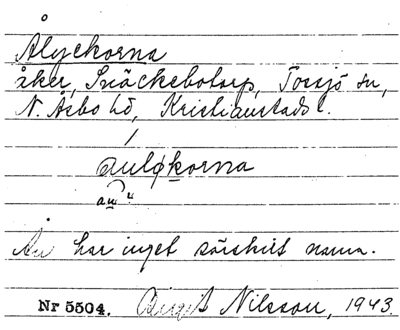 Ålyckorna
åker, Snäckebotorp, Tossjö sn,
N. Åsbo hd, Kristianstads l.
aulykorna
Ån har inget särskilt namn.
Nr 5504. Birgit Nilsson, 1943.